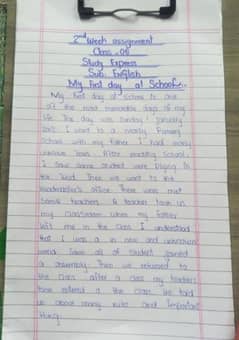 2nd Week assignment
Class - 06
Study Express
Sub English
My first day at School.
My first day at school is one
of the most memorable days of my
life. The day was Sunday 1 January
I went to a nearby Primary
School with my father. I had many
After reaching School,
I saw some student were playing in
the field. Then we went to the
headmaster's office. There were met
some teachers. A teacher took us
my classroom when my father
left me in the class I understood
that I was a in new and unknown
world. all of student joined
a assembly. Then we returned to
the class. after a class my teachers
entered a the class. He told
us about many rules and important
thing.